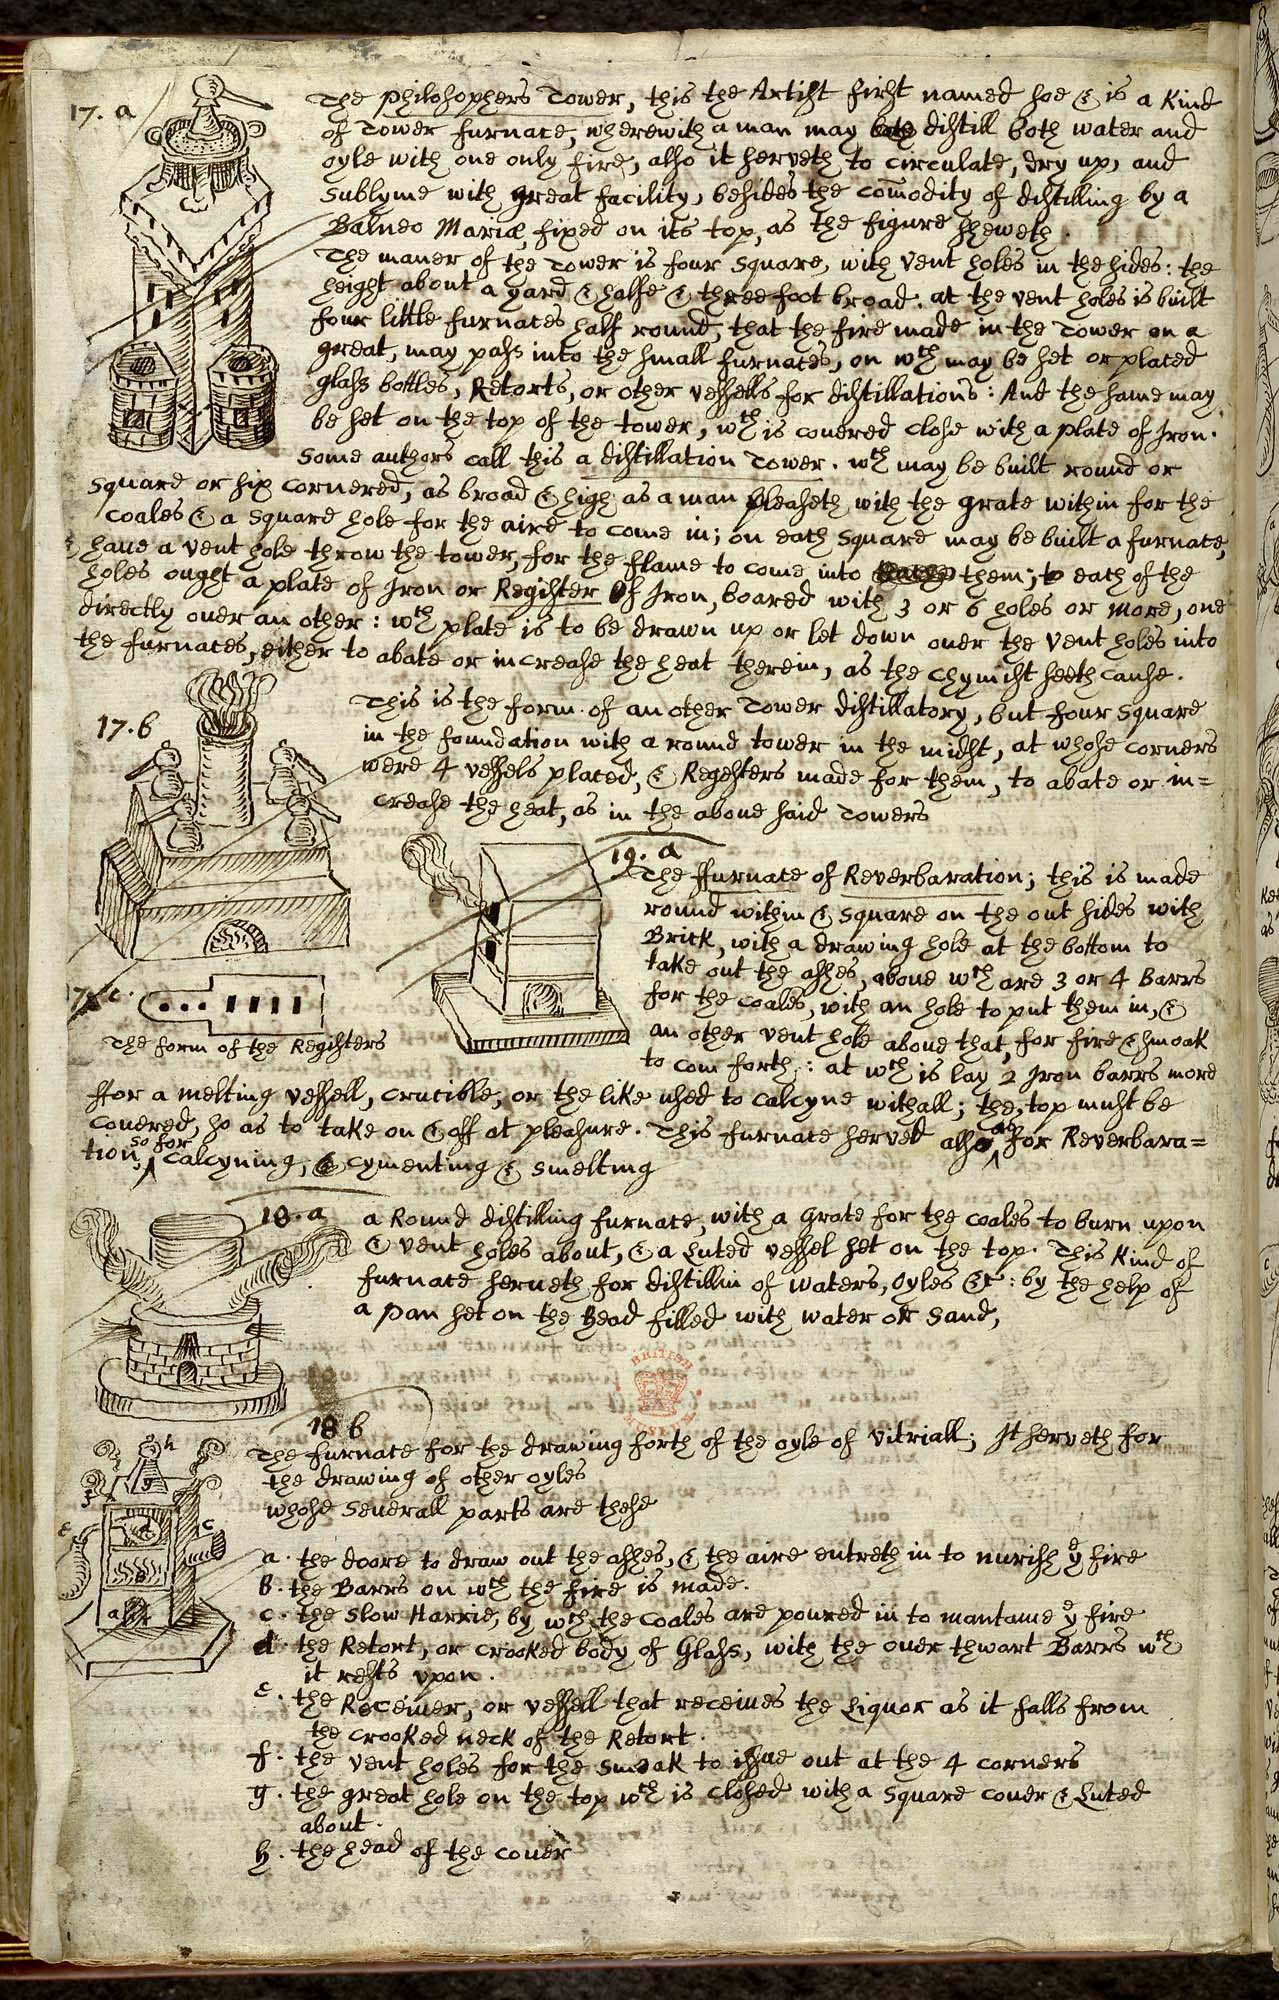 17. a
The Philosophers Tower, this the Artist first named soe & is a Kind
of Tower furnace, wherewith a man may distill both water and
oyle with one only fire, also it serveth to circulate, dry up, and
Sublyme with great facility, besides the com̄odity of distilling by a
Balneo Mariæ, fixed on its top, as the figure sheweth.
The maner of the Tower is four square, with vent holes in the sides: the
height about a yard & halfe & three foot broad: at the vent holes is built
four little furnaces half round, that the fire made in the Tower on a
great, may pass into the small furnaces, on wth may be set or placed
glass bottles, Retorts, or other vessells for distillations: And the same may
be set on the top of the tower, wth is couered close with a plate of Iron.
Some authors call this a distillation Tower. wth may be built round or
square or six cornered, as broad & high as a man pleaseth with the grate within for the
coales & a square hole for the aire to come in; on each square may be built a furnace,
& haue a vent hole throw the tower, for the flame to come into them; to each of the
holes ought a plate of Iron or Register of Iron, boared with 3 or 6 holes or more, one
directly ouer an other: wth plate is to be drawn up or let down ouer the vent holes into
the furnaces, either to abate or increase the heat therein, as the Chymist seeth cause.
17. b
This is the form of an other Tower distillatory, but four square
in the foundation with a round tower in the midst, at whose corners
were 4 vessels placed, & Regesters made for them, to abate or in=
crease the heat, as in the aboue said Towers
19. a
The ffurnace of Reverbaration; this is made
round within & square on the out sides with
Brick, with a drawing hole at the bottom to
take out the ashes, aboue wth are 3 or 4 Barrs
for the coales, with an hole to put them in, &
an other vent hole aboue that, for fire & smoak
to com forth: at wth is lay 2 Iron barrs more
17. c.
The form of the Registers
ffor a melting vessell, crucible, or the like used to calcyne withall; the top must be
couered, so as to take on & off at pleasure. This furnace served also as for Reverbara=
tion, so for calcyning, cymenting & smelting
18. a
a Round distilling furnace, with a grate for the coales to burn upon
& vent holes about, & a Luted vessel set on the top. This Kind of
furnace serueth for distillin of waters, oyles &c: by the help of
a pan set on the head filled with water or sand,
BRITISH MUSEUM
18 b
The furnace for the drawing forth of the oyle of Vitriall; It serveth for
the drawing of other oyles
whose seuerall parts are these
h
g
f
e
d
c
b
a
a. the doore to draw out the ashes, & the aire entreth in to nurish ye fire
b. the Barrs on wth the fire is made.
c. the Slow Harrie, by wth the coales are poured in to mantame ye fire
d. the Retort, or crooked body of Glass, with the ouer thwart Barrs wth
it rests upon.
e. the Receiuer, or vessell that receiues the Liquor as it falls from
the crooked neck of the Retort.
f. the vent holes for the smoak to issue out at the 4 corners
g. the great hole on the top wth is closed with a square couer & Luted
about.
h. the head of the couer